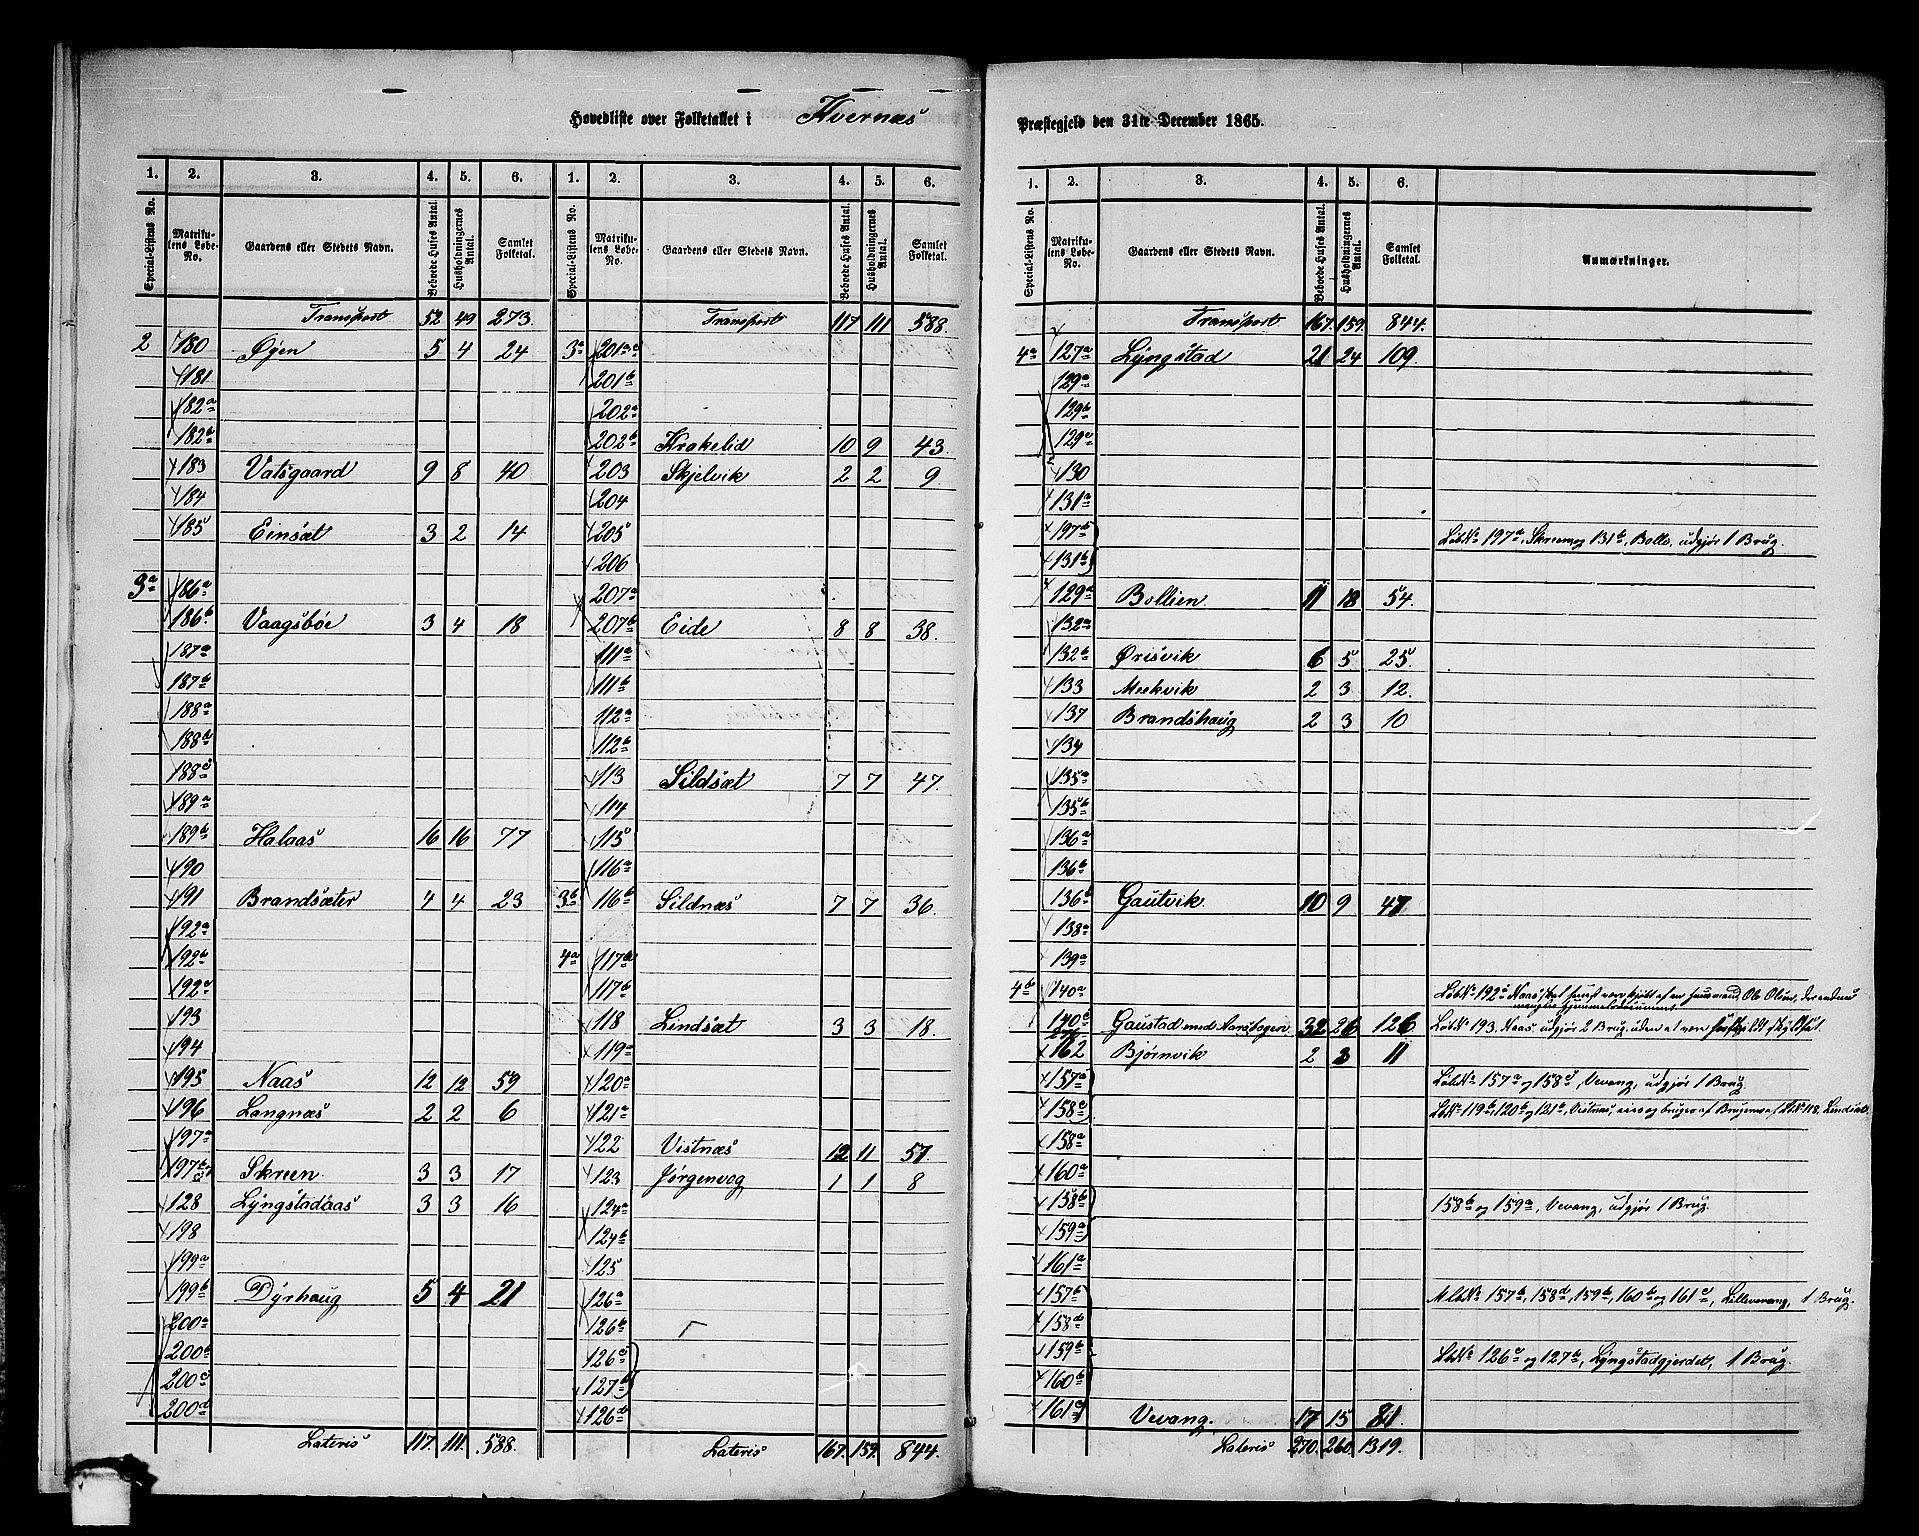 Hovedliste over Folketallet i Kvernæs
Præstegjeld den 31te December 1865.
1. 2. 3. 4. 5. 6. 1. 2. 3. 4. 5. 6.
Special-Listens No. Matrikulens Løbe-No. Gaardens eller Stedets Navn. Beboede Huses Antal. Husholdningernes Antal. Samlet Folketal. Special-Listens No. Matrikulens Løbe-No. Gaardens eller Stedets Navn. Beboede Huses Antal. Husholdningernes Antal. Samlet Folketal.
Transport 52 49 273.
2 180 Øyen 5 4 24
181
182a
182b
183 Vatsgaard 9 8 40
184
185 Einsæt 3 2 14
3a 186a
186b Vaagsbøe 3 4 18
187a
187b
188a
188b
188c
189a
189b Halaas 16 16 77
190
191 Brandsæter 4 4 23
192a
192b
192c
193
194
195 Naas 12 12 59
196 Langnæs 2 2 6
197a
197b Skreen 3 3 17
128 Lyngstadaas 3 3 16
198
199a
199b Dyrhaug 5 4 21
200a
200b
200c
200d
Lateris 117. 111. 588.
Transport 117 111 588.
3a 201a
201b
202a
202b Krakelid 10 9 43.
203 Skjelvik 2 2 9.
204
205
206
207a
207b Eide 8 8 38.
111a
111b
112a
112b
113 Sildsæt 7 7 47.
114
115
116a
3b 116b Sildnæs 7 7 36.
4a 117a
117b
118 Lindsæt 3 3 18.
119a
120a
121a
122 Vistnæs 12 11 57.
123 Jørgenvog 1 1 8
124a
124b
125
126a
126b
126c
127b
126d
Lateris 167. 159. 844.
1. 2. 3. 4. 5. 6.
Special-Listens No. Matrikulens Løbe-No. Gaardens eller Stedets Navn. Beboede Huses Antal. Husholdningernes Antal. Samlet Folketal. Anmærkninger.
Transport 167. 159. 844.
4a 127a Lyngstad 21 24 109.
129a
129b
129c
130
131a
197a LøbeNo 197a, Skreen og 131b, Bolle, udgjør 1 Brug.
131b
129a Bollien 11 18 54.
132a
132b Ørisvik 6 5 25.
133 Meekvik 2 3 12.
137 Brandshaug 2 3 10
134
135a
135b
136a
136b
136b Gautvik 10 9 47.
138a
139a
4b 140a
140c Gaustad med Aarsbogen 32 26 126 LøbNo 193. Naas. udgjør 2 Brug, uden at være
162 Bjørnvik 2 3 11
157a LøbNo 157a og 158c, Vevang, udgjør 1 Brug.
158c LbNo 119b, 120b og 121b, Vistnæs, eies og bruges af Brugerne af LNo 118. Lindsæt.
158a
160a
158b 158b og 159a, Vevang, udgjør 1 Brug.
159a
161a
157b MlbNo 157b, 158d, 159b, 160b og 161c, Lillevevang, 1 Brug.
158d
159b LbNo 126c og 127b, Lyngstadgjerdet, 1 Brug.
160b
161c Vevang. 17 15 81.
Lateris 270. 260. 1319.